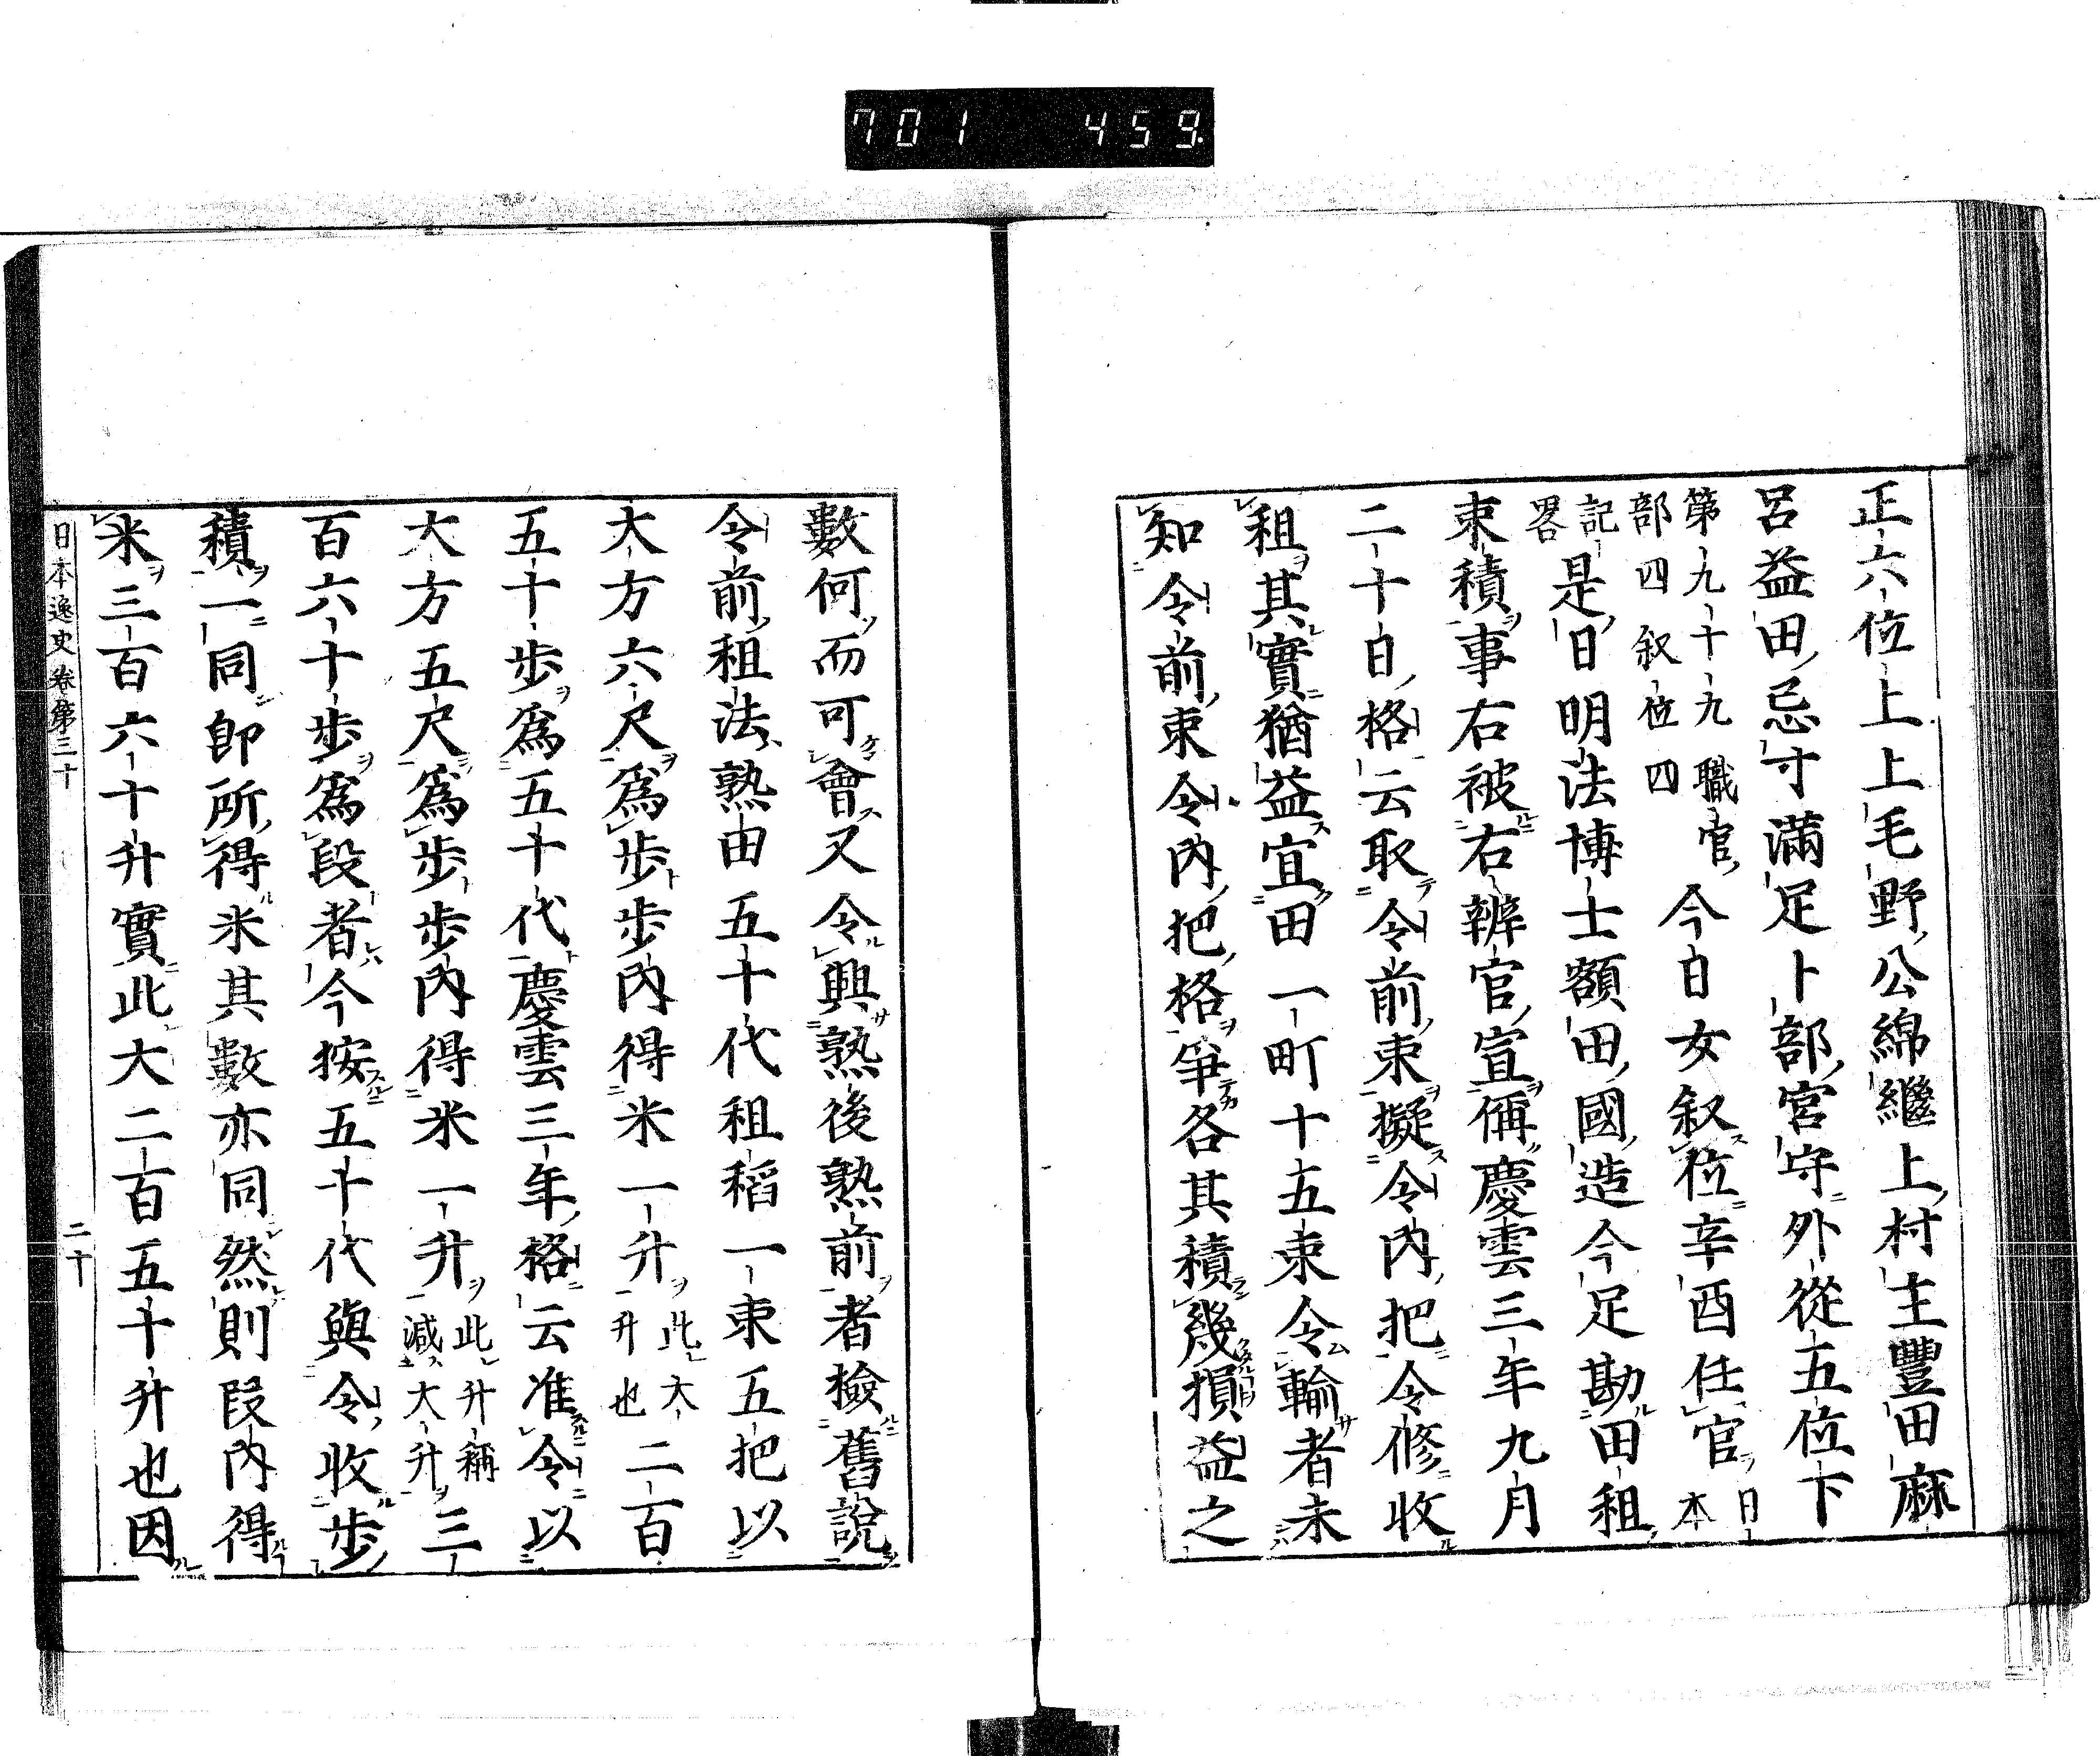 701 459
正六位上上毛野公綿繼上村主豐田麻
呂益田忌寸滿足卜部宮守外從五位下
第九十九職官
部四叙位四
今日女叙位辛酉任官
日
本
記
畧
是日明法博士額田國造今足勘田租
束積事右被右辨官宣偁慶雲三年九月
二十日格云取令前束擬令內把令修收
租其實猶益宜田一町十五束令輸者未
知令前束令內把格爭各其積幾損益之
數何而可會又令興熟後熟前者檢舊說
令前租法熟由五十代租稻一束五把以
大方六尺爲步步內得米一升
此大
升也
二百
五十步爲五十代慶雲三年格云准令以
大方五尺爲步步內得米一升
此升稱
減大升
三
百六十步爲段者今按五十代與令收步
積一同卽所得米其數亦同然則段內得
米三百六十升實此大二百五十升也因
日本逸史卷第三十
二十